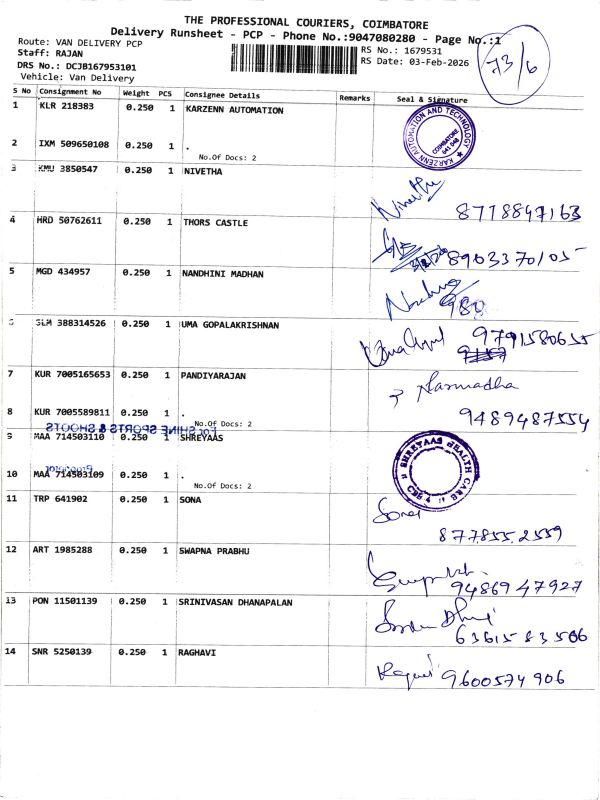 THE PROFESSIONAL COURIERS, COIMBATORE
Delivery Runsheet - PCP - Phone No.:9047080280 - Page No.:1
Route: VAN DELIVERY PCP
RS No.: 1679531
Staff: RAJAN
RS Date: 03-Feb-2026
DRS No.: DCJB167953101
Vehicle: Van Delivery
73/6
S No Consignment No Weight PCS Consignee Details Remarks Seal & Signature
1 KLR 218383 0.250 1 KARZENN AUTOMATION
KARZENN AUTOMATION AND TECHNOLOGY COIMBATORE
2 IXM 509650108 0.250 1 .
No.Of Docs: 2
3 KMU 3850547 0.250 1 NIVETHA
8778847163
4 HRD 50762611 0.250 1 THORS CASTLE
8903370105
5 MGD 434957 0.250 1 NANDHINI MADHAN
6 SLM 388314526 0.250 1 UMA GOPALAKRISHNAN
9791580655
7 KUR 7005165653 0.250 1 PANDIYARAJAN
Narmadha
8 KUR 7005589811 0.250 1 .
No.Of Docs: 2
9489487554
For SHINE SPORTS & SHOOTS
9 MAA 714503110 0.250 1 SHREYAAS
SHREYAAS HEALTH CARE CBE-4
Proprietor
10 MAA 714503109 0.250 1 .
No.Of Docs: 2
11 TRP 641902 0.250 1 SONA
Sona
877855 2559
12 ART 1985288 0.250 1 SWAPNA PRABHU
9486947927
13 PON 11501139 0.250 1 SRINIVASAN DHANAPALAN
6361583506
14 SNR 5250139 0.250 1 RAGHAVI
9600574906